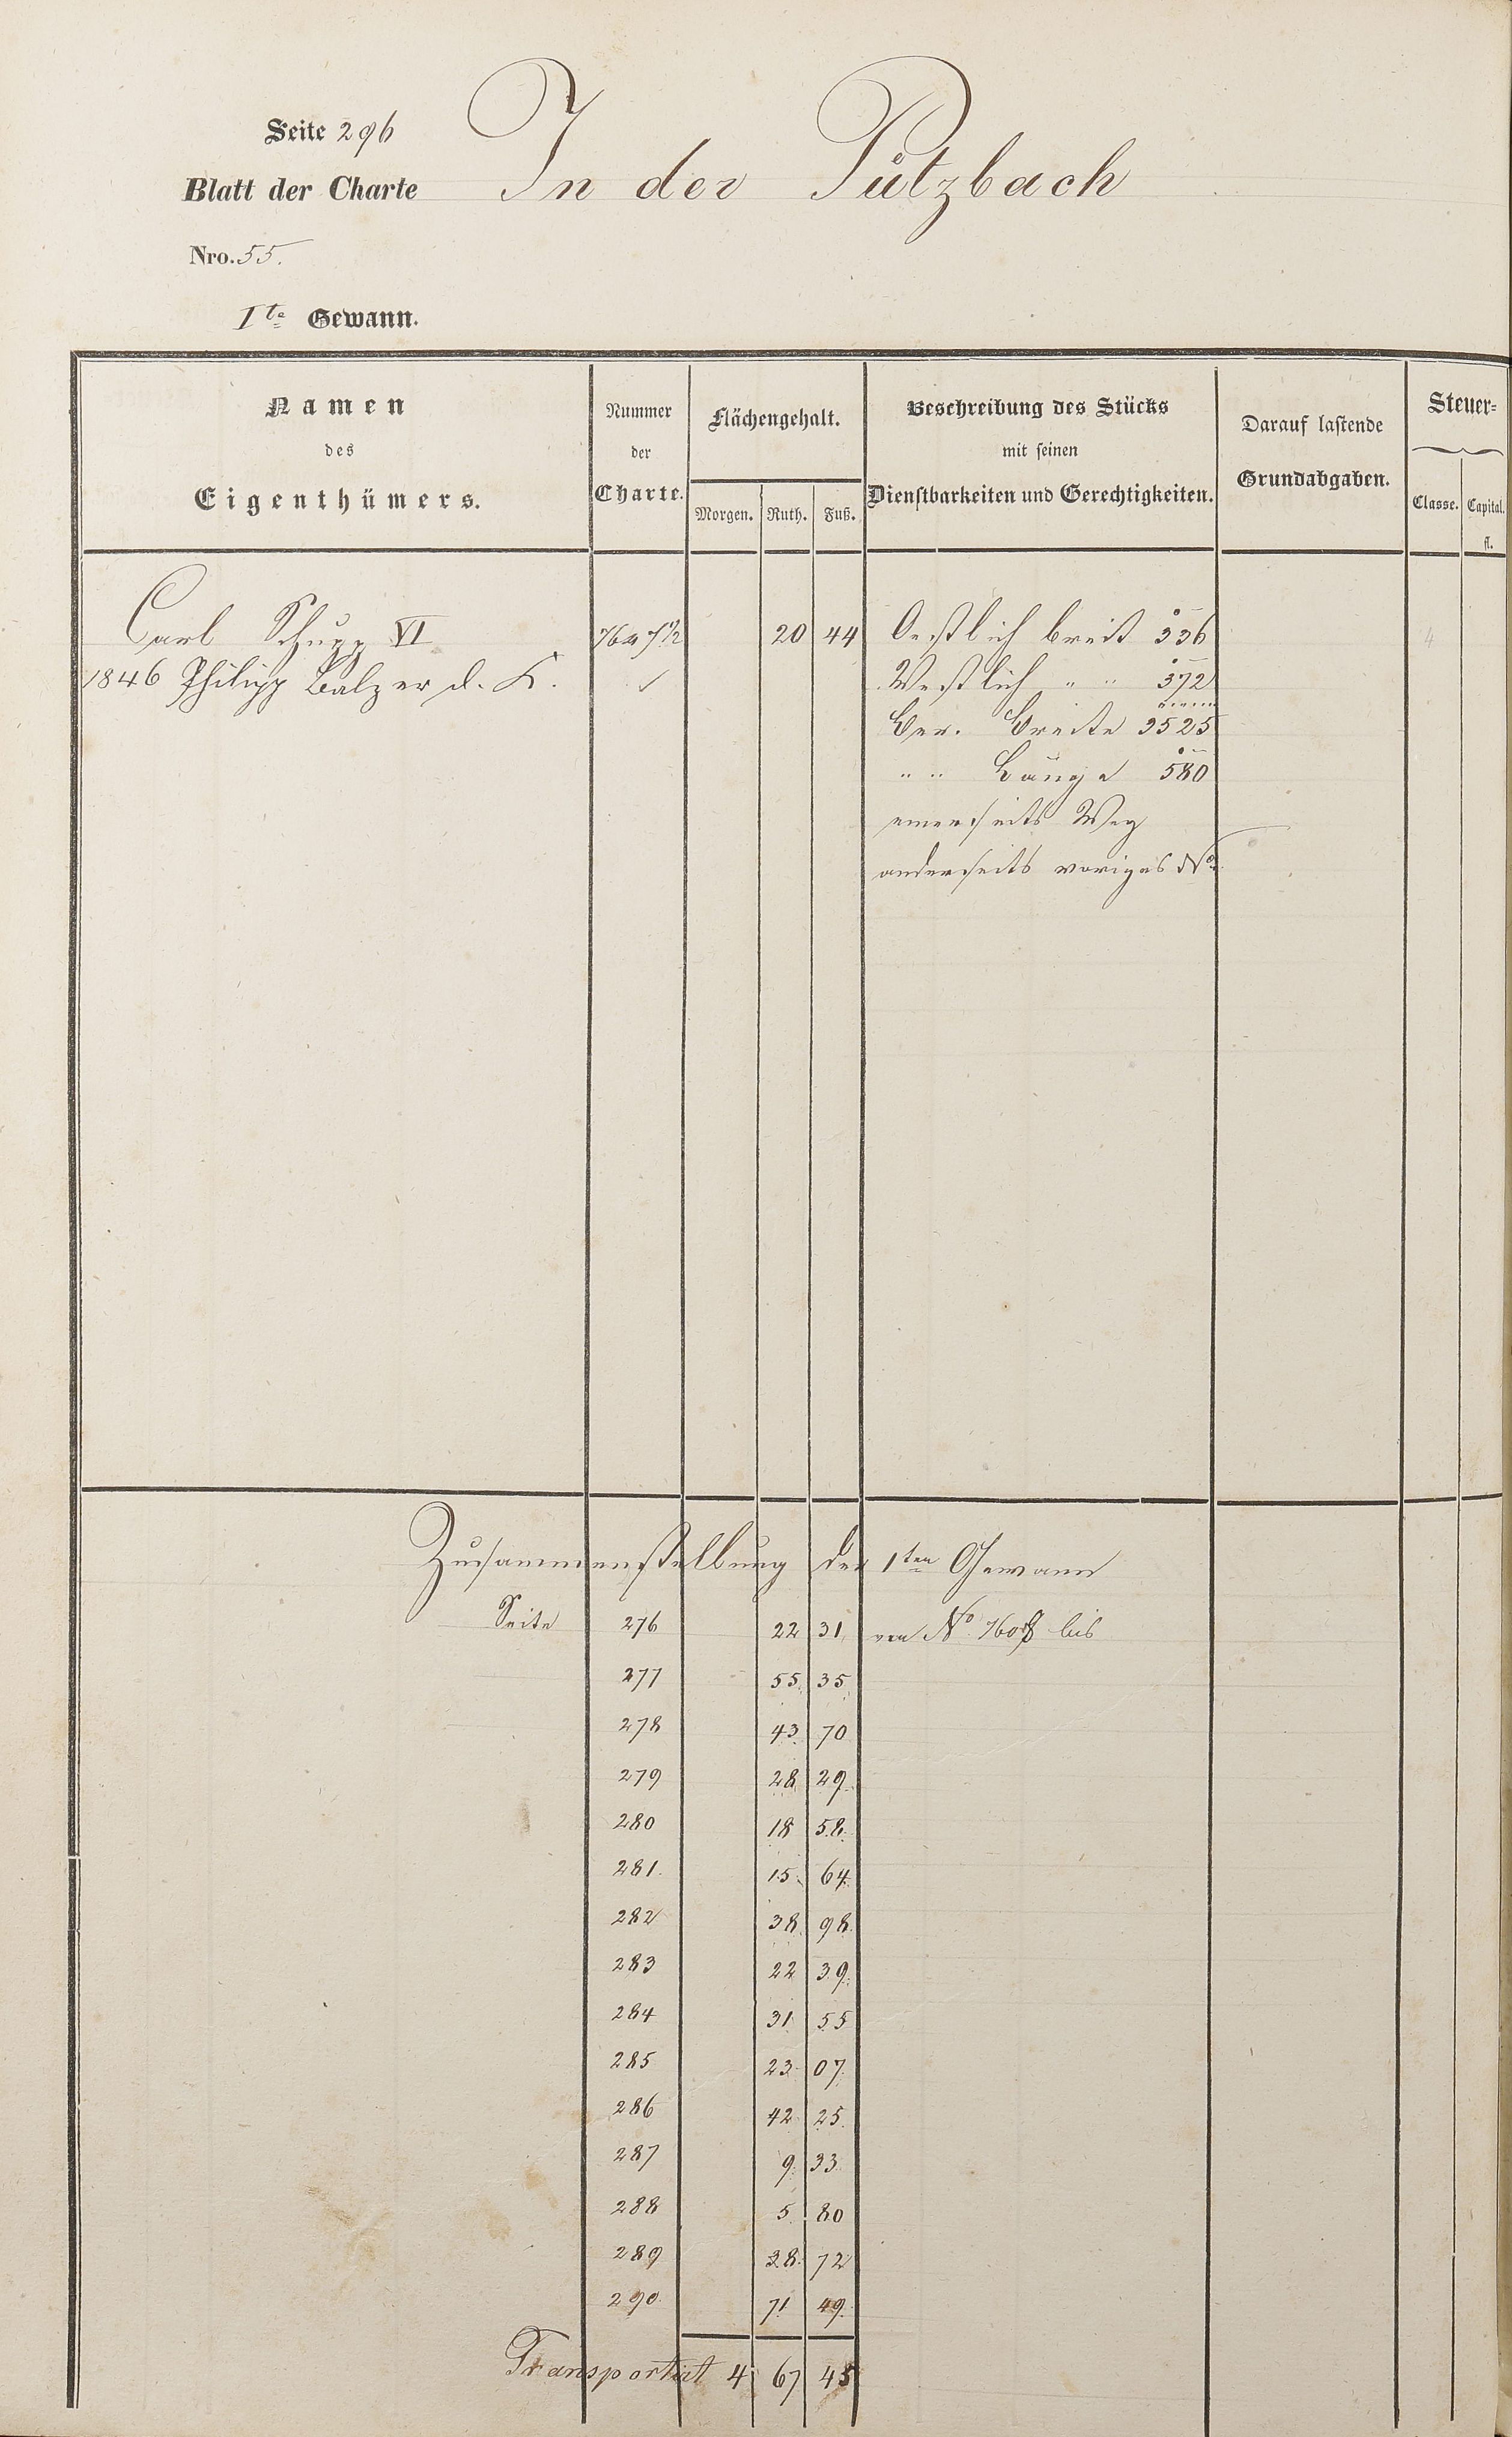 Seite 296
In der Pützbach
Blatt der Charte
Nro. 55.
1te Gewann.
Namen des Eigenthümers.
Nummer der Charte.
Flächengehalt.
Morgen. Ruth. Fuß.
Beschreibung des Stücks mit seinen Dienstbarkeiten und Gerechtigkeiten.
Darauf lastende Grundabgaben.
Steuer=
Classe. Capital. fl.
Carl Schupp VI 20 44 Oestlich breit 336 4
1846 Philipp Balzer d. K. ✓ Westlich " " 372
Ber. Breite 3525
" " Länge 580
einerseits Weg
anderseits voriges No
Zusammenstellung der 1ten Gewann
Seite 276 22 31 von No 7608 bis
277 55 35
278 43 70
279 28 29
280 18 58
281 15 64
282 38 98
283 22 39
284 31 55
285 23 07
286 42 25
287 9 33
288 5 80
289 38 72
290 71 49
Transportirt 4 67 45